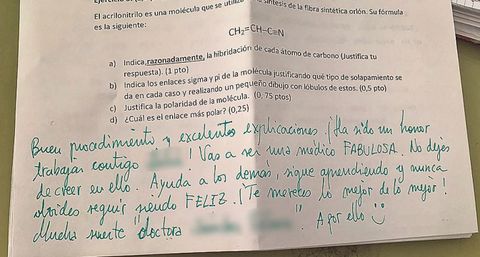 El acrilonitrilo es una molécula que se utiliza síntesis de la fibra sintética orlón. Su fórmula
es la siguiente:
CH₂=CH–C≡N
a) Indica razonadamente, la hibridación de cada átomo de carbono (Justifica tu
respuesta). (1 pto)
b) Indica los enlaces sigma y pi de la molécula justificando qué tipo de solapamiento se
da en cada caso y realizando un pequeño dibujo con lóbulos de estos. (0,5 pto)
c) Justifica la polaridad de la molécula. (0,75 ptos)
d) ¿Cuál es el enlace más polar? (0,25)
Buen procedimiento y excelentes explicaciones. ¡Ha sido un honor
trabajar contigo ! Vas a ser una médico FABULOSA. No dejes
de creer en ello. Ayuda a los demás, sigue aprendiendo y nunca
olvides seguir siendo FELIZ. ¡Te mereces lo mejor de lo mejor!
Mucha suerte "doctora ". A por ello